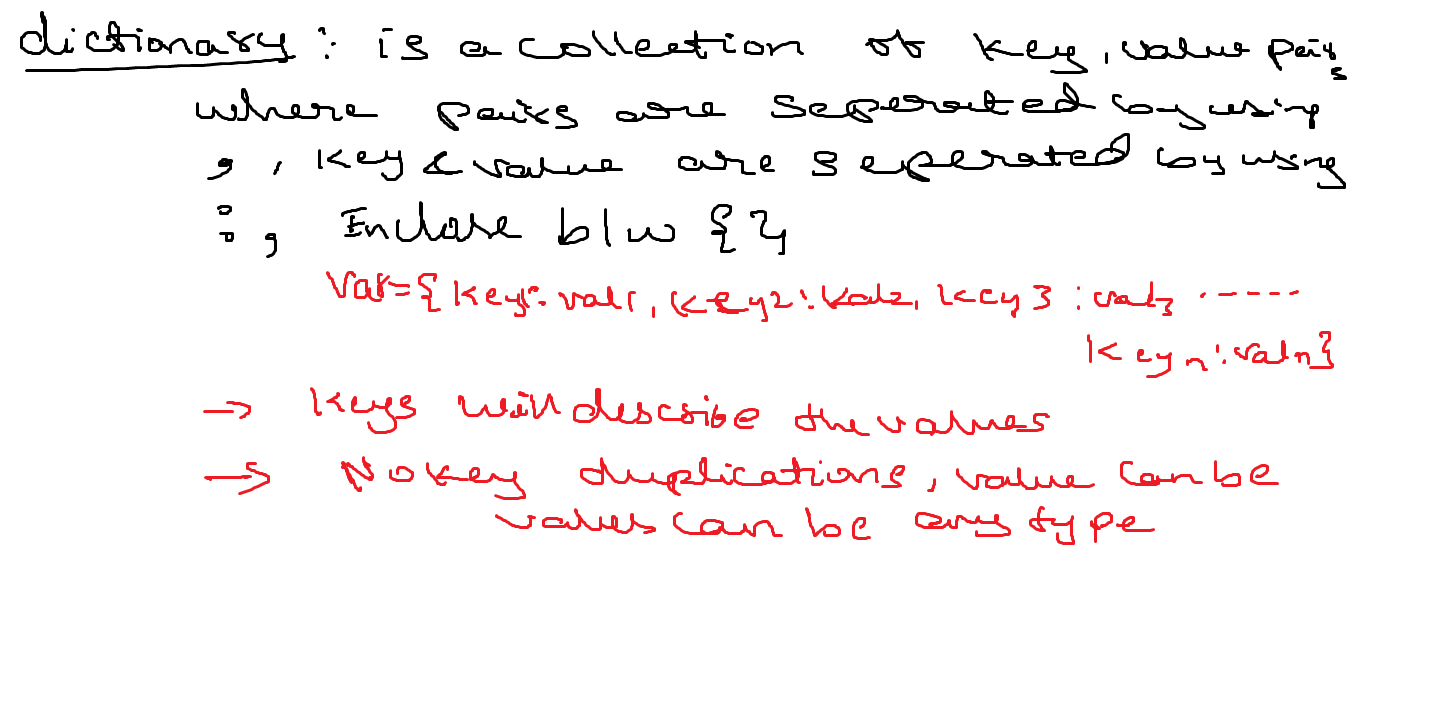 dictionary : is a collection of key, value pairs
where pairs are seperated by using
, , key & value are seperated by using
: , Enclose b/w { }
Var={key1:val1, key2:val2, key3:val3 ------
keyn:valn}
→ keys will describe the values
→ No key duplications, value can be
values can be any type